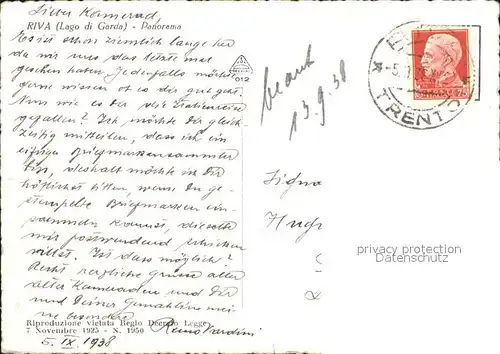 Lieber Kamerad,
RIVA (Lago di Garda) - Panorama
Es ist schon ziemlich lange her
da wir uns das letzte mal
gesehen haben. Jedenfalls möchte
gerne wissen ob es dir gut geht.
Nun wie es dir die Italienreise
gefallen? Ich möchte dir gleich-
zeitig mitteilen, dass ich ein
eifriger Briefmarkensammler
bin, weshalb möchte ich dir
höflichst bitten, wenn Du ge-
stempelte Briefmarken ein-
sammeln kannst, dieselbe
mir postwendend schicken
willst. Ist das möglich?
Recht herzliche Grüsse aller
alter Kameraden und dir
und Deiner Gemahlin mei-
ne besondere
Riproduzione vietata Regio Decreto Legge
7 Novembre 1925 - N. 1950
5. IX. 1938
012
13.9.38
TRENTO
Signo
Hug
privacy protection
Datenschutz